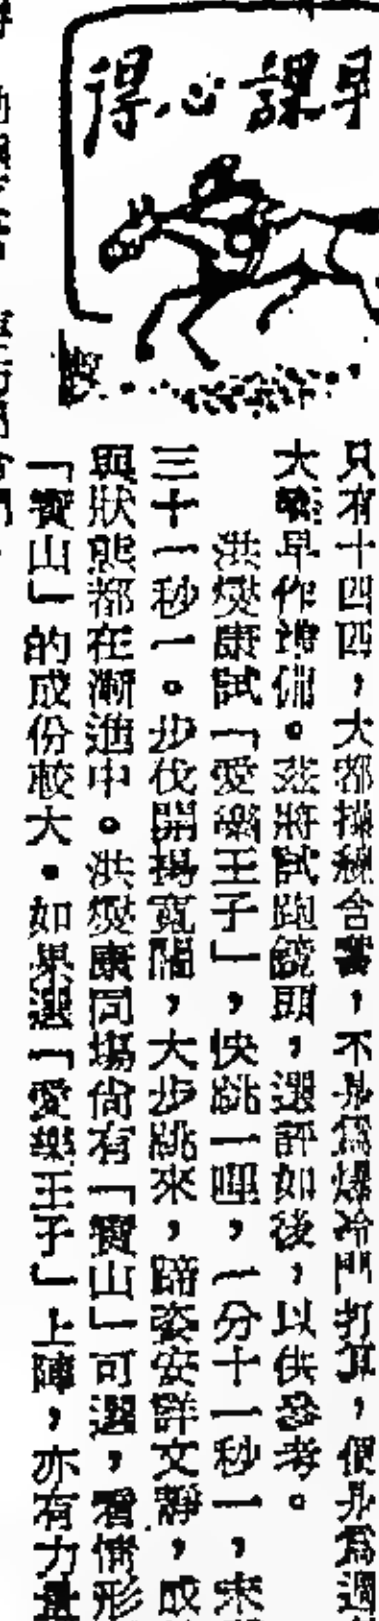 早課心得
只有十四四，大都操練含蓄，不是為爆冷門打算，便是為週
大喉早作準備。茲將試跑鏡頭，選評如後，以供參考。
洪爕康試「愛樂王子」，快跳一哩，一分十一秒一，末
三十一秒一。步伐開揚寬闊，大步跳來，蹄姿安詳文靜，成
與狀態都在漸進中。洪爕康同場尚有「寶山」可選，看情形
「寶山」的成份較大。如果選「愛樂王子」上陣，亦有力量